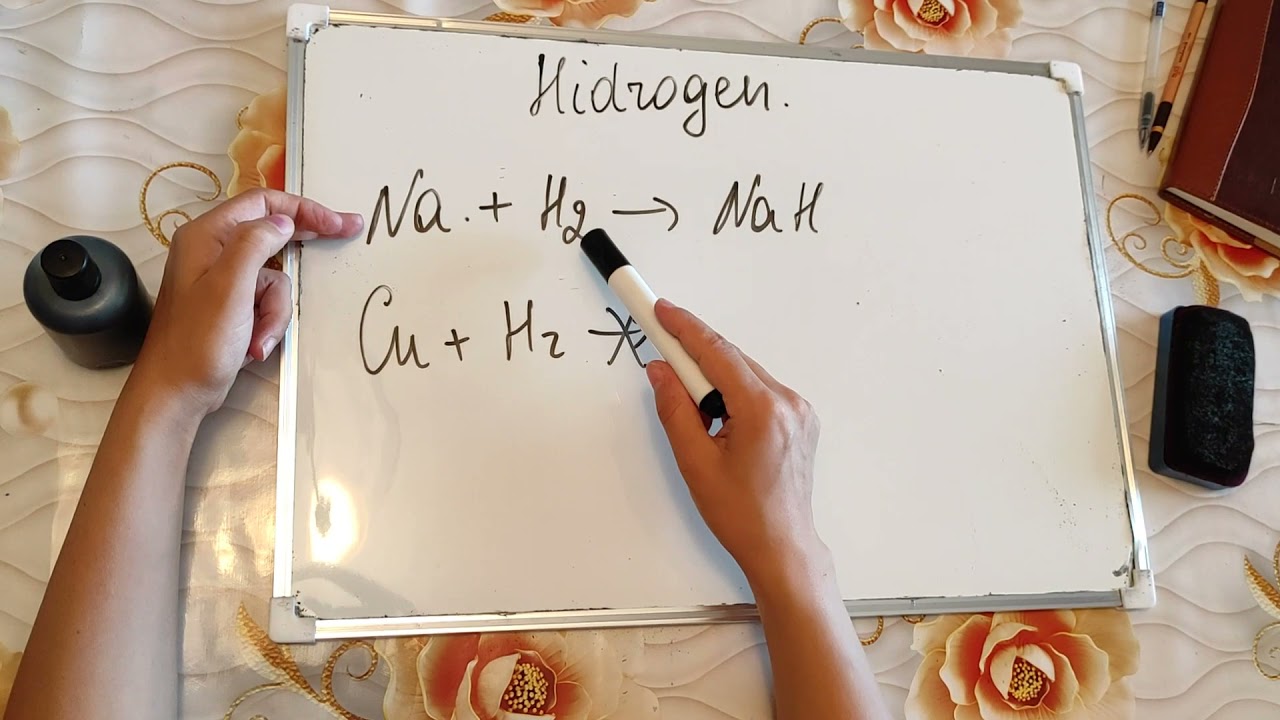 Hidrogen.
Na + H2 → NaH
Cu + H2 ↛